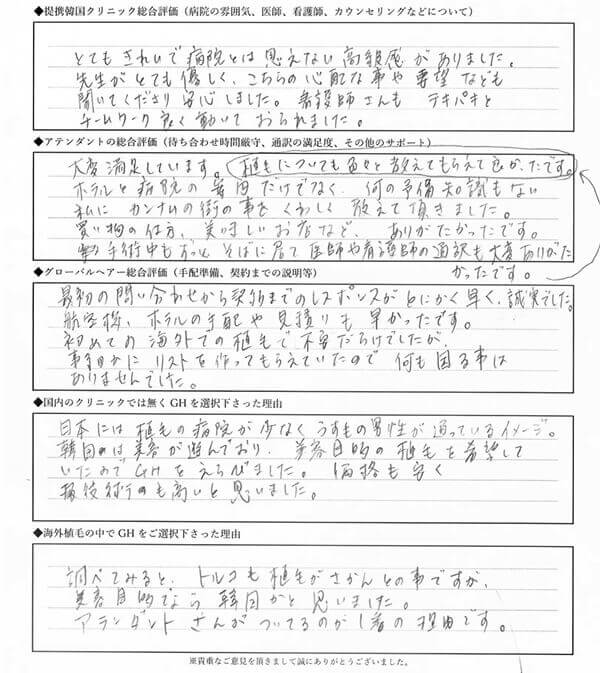 ◆提携韓国クリニック総合評価（病院の雰囲気、医師、看護師、カウンセリングなどについて）
とてもきれいで病院とは思えない高級感がありました。
先生がとても優しく、こちらの心配な事や要望なども
聞いてくださり安心しました。看護師さんも テキパキと
チームワーク良く動いて おられました。
◆アテンダントの総合評価（待ち合わせ時間厳守、通訳の満足度、その他のサポート）
大変満足しています。植毛についても色々と教えてもらえて良かったです。
ホテルと病院の案内だけでなく、何の予備知識もない
私に カンナムの街の事を くわしく 教えて頂きました。
買い物の仕方、美味しいお店など、ありがたかったです。
手術中もずっと そばに居て 医師や看護師の通訳も大変ありがた
かったです。
◆グローバルヘアー総合評価（手配準備、契約までの説明等）
最初の問い合わせから契約までのレスポンスがとにかく早く、誠実でした。
航空機、ホテルの手配や見積りも 早かったです。
初めての 海外での 植毛で 不安だらけでしたが、
事細かに リストを作ってもらえていたので 何も困る事は
ありませんでした。
◆国内のクリニックでは無くGHを選択下さった理由
日本には 植毛の病院が少なく うすもの男性が 通っているイメージ。
韓国は美容が進んでおり、美容目的の 植毛を希望して
いたので GHを えらびました。 価格も安く
も高いと思いました。
◆海外植毛の中でGHをご選択下さった理由
調べてみると、トルコも植毛がさかんとの事ですが、
美容目的なら 韓国かと思いました。
アテンダント さんが ついてるのが 1番の 理由です。
※貴重なご意見を頂きまして誠にありがとうございました。